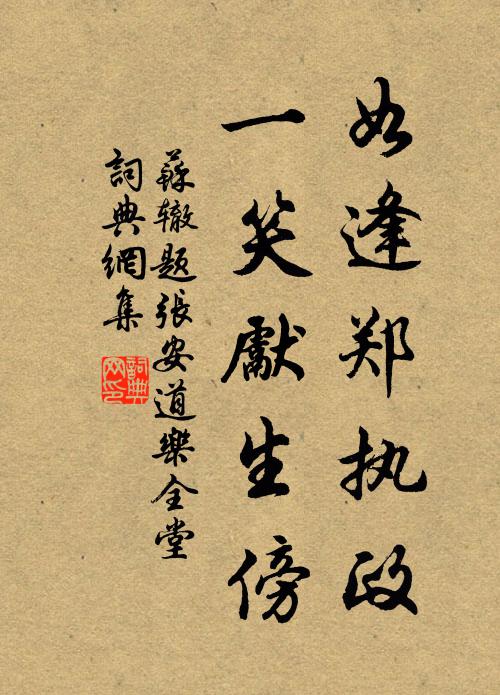 如逢郑执政
一笑献生傍
蘇辙题張安道樂全堂
詞典網集
詞典网印